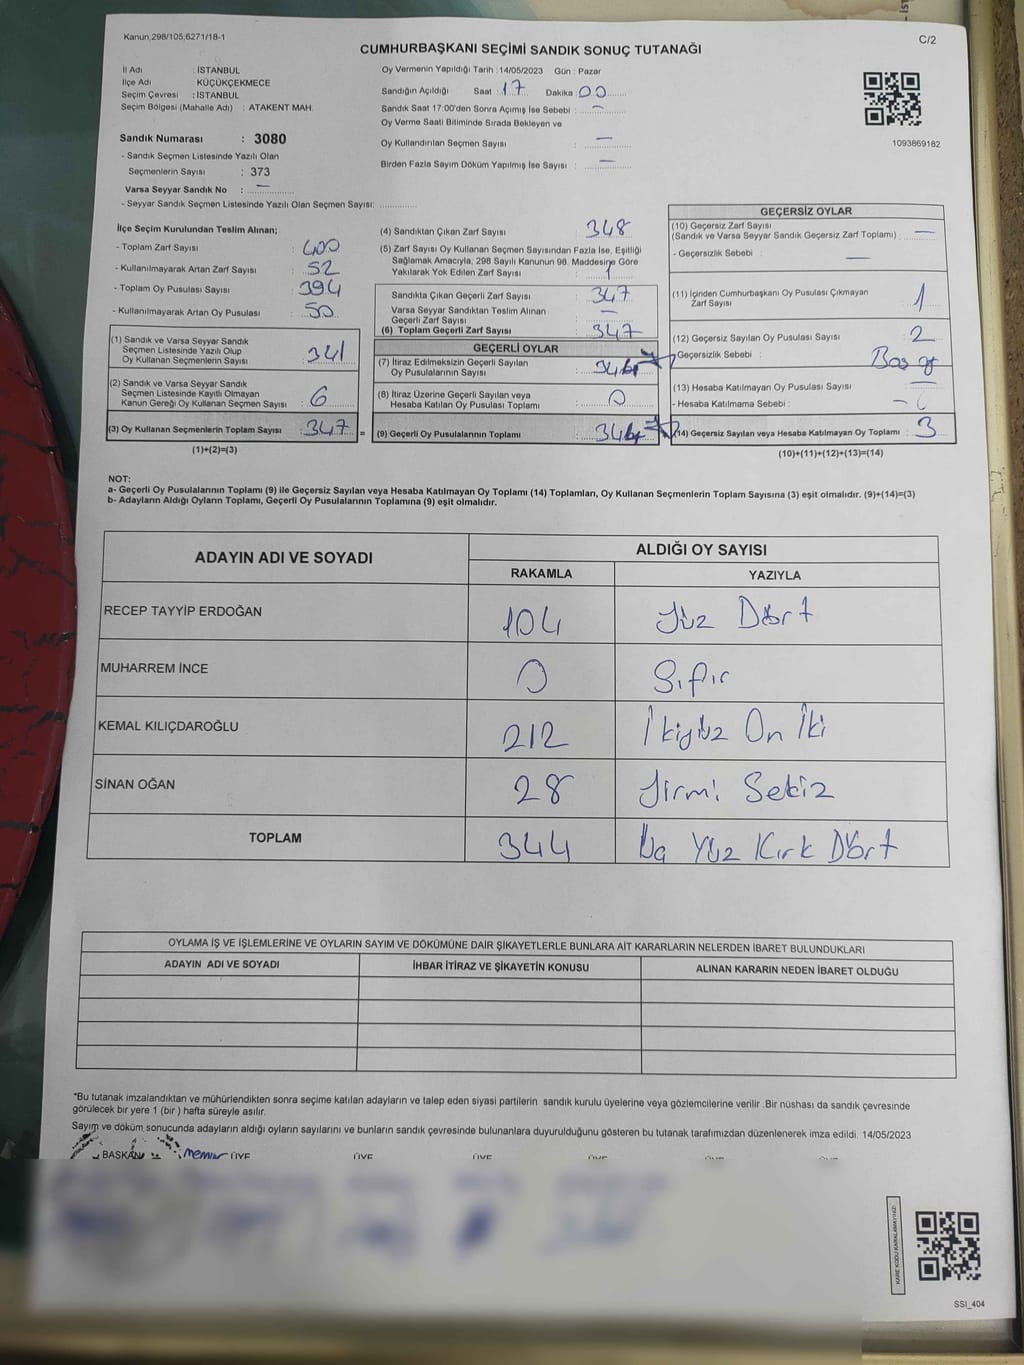 Kanun,298/105;6271/18-1
C/2
CUMHURBAŞKANI SEÇİMİ SANDIK SONUÇ TUTANAĞI
İl Adı : İSTANBUL
İlçe Adı : KÜÇÜKÇEKMECE
Seçim Çevresi : İSTANBUL
Seçim Bölgesi (Mahalle Adı) : ATAKENT MAH.
Sandık Numarası : 3080
- Sandık Seçmen Listesinde Yazılı Olan
Seçmenlerin Sayısı : 373
Varsa Seyyar Sandık No : —
- Seyyar Sandık Seçmen Listesinde Yazılı Olan Seçmen Sayısı: ..............
Oy Vermenin Yapıldığı Tarih : 14/05/2023 Gün : Pazar
Sandığın Açıldığı Saat : 17 Dakika : 00
Sandık Saat 17:00'den Sonra Açımış İse Sebebi : —
Oy Verme Saati Bitiminde Sırada Bekleyen ve
Oy Kullandırılan Seçmen Sayısı : —
Birden Fazla Sayım Döküm Yapılmış İse Sayısı : —
1093869182
İlçe Seçim Kurulundan Teslim Alınan;
- Toplam Zarf Sayısı : 400
- Kullanılmayarak Artan Zarf Sayısı : 52
- Toplam Oy Pusulası Sayısı : 394
- Kullanılmayarak Artan Oy Pusulası : 50
(1) Sandık ve Varsa Seyyar Sandık
Seçmen Listesinde Yazılı Olup
Oy Kullanan Seçmenlerin Sayısı : 341
(2) Sandık ve Varsa Seyyar Sandık
Seçmen Listesinde Kayıtlı Olmayan
Kanun Gereği Oy Kullanan Seçmen Sayısı : 6
(3) Oy Kullanan Seçmenlerin Toplam Sayısı : 347 =
(1)+(2)=(3)
(4) Sandıktan Çıkan Zarf Sayısı : 348
(5) Zarf Sayısı Oy Kullanan Seçmen Sayısından Fazla İse, Eşitliği
Sağlamak Amacıyla; 298 Sayılı Kanunun 98. Maddesine Göre
Yakılarak Yok Edilen Zarf Sayısı : 1
Sandıkta Çıkan Geçerli Zarf Sayısı : 347
Varsa Seyyar Sandıktan Teslim Alınan
Geçerli Zarf Sayısı : —
(6) Toplam Geçerli Zarf Sayısı : 347
GEÇERLİ OYLAR
(7) İtiraz Edilmeksizin Geçerli Sayılan
Oy Pusulalarının Sayısı :
(8) İtiraz Üzerine Geçerli Sayılan veya
Hesaba Katılan Oy Pusulası Toplamı : 0
(9) Geçerli Oy Pusulalarının Toplamı :
GEÇERSİZ OYLAR
(10) Geçersiz Zarf Sayısı
(Sandık ve Varsa Seyyar Sandık Geçersiz Zarf Toplamı) : —
- Geçersizlik Sebebi : —
(11) İçinden Cumhurbaşkanı Oy Pusulası Çıkmayan
Zarf Sayısı : 1
(12) Geçersiz Sayılan Oy Pusulası Sayısı : 2
Geçersizlik Sebebi : Boş oy
(13) Hesaba Katılmayan Oy Pusulası Sayısı : —
- Hesaba Katılmama Sebebi : —
(14) Geçersiz Sayılan veya Hesaba Katılmayan Oy Toplamı : 3
(10)+(11)+(12)+(13)=(14)
NOT:
a- Geçerli Oy Pusulalarının Toplamı (9) ile Geçersiz Sayılan veya Hesaba Katılmayan Oy Toplamı (14) Toplamları, Oy Kullanan Seçmenlerin Toplam Sayısına (3) eşit olmalıdır. (9)+(14)=(3)
b- Adayların Aldığı Oyların Toplamı, Geçerli Oy Pusulalarının Toplamına (9) eşit olmalıdır.
ADAYIN ADI VE SOYADI ALDIĞI OY SAYISI
RAKAMLA YAZIYLA
RECEP TAYYİP ERDOĞAN 104 Yüz Dört
MUHARREM İNCE 0 Sıfır
KEMAL KILIÇDAROĞLU 212 İkiyüz On İki
SİNAN OĞAN 28 Yirmi Sekiz
TOPLAM 344 Üç Yüz Kırk Dört
OYLAMA İŞ VE İŞLEMLERİNE VE OYLARIN SAYIM VE DÖKÜMÜNE DAİR ŞİKAYETLERLE BUNLARA AİT KARARLARIN NELERDEN İBARET BULUNDUKLARI
ADAYIN ADI VE SOYADI İHBAR İTİRAZ VE ŞİKAYETİN KONUSU ALINAN KARARIN NEDEN İBARET OLDUĞU
*Bu tutanak imzalandıktan ve mühürlendikten sonra seçime katılan adayların ve talep eden siyasi partilerin sandık kurulu üyelerine veya gözlemcilerine verilir .Bir nüshası da sandık çevresinde
görülecek bir yere 1 (bir ) hafta süreyle asılır.
Sayım ve döküm sonucunda adayların aldığı oyların sayılarını ve bunların sandık çevresinde bulunanlara duyurulduğunu gösteren bu tutanak tarafımızdan düzenlenerek imza edildi. 14/05/2023
BAŞKAN ÜYE ÜYE ÜYE ÜYE
KARE KODU KARALAMAYINIZ!
SSI_404